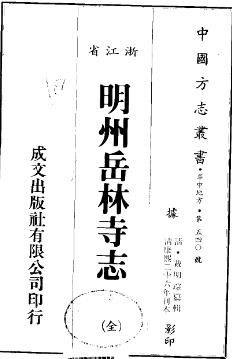 中國方志叢書·華中地方·第五四〇號
據
清·戴明琮纂輯
清康熙二十六年刊本
影印
浙江省
明州岳林寺志
(全)
成文出版社有限公司印行